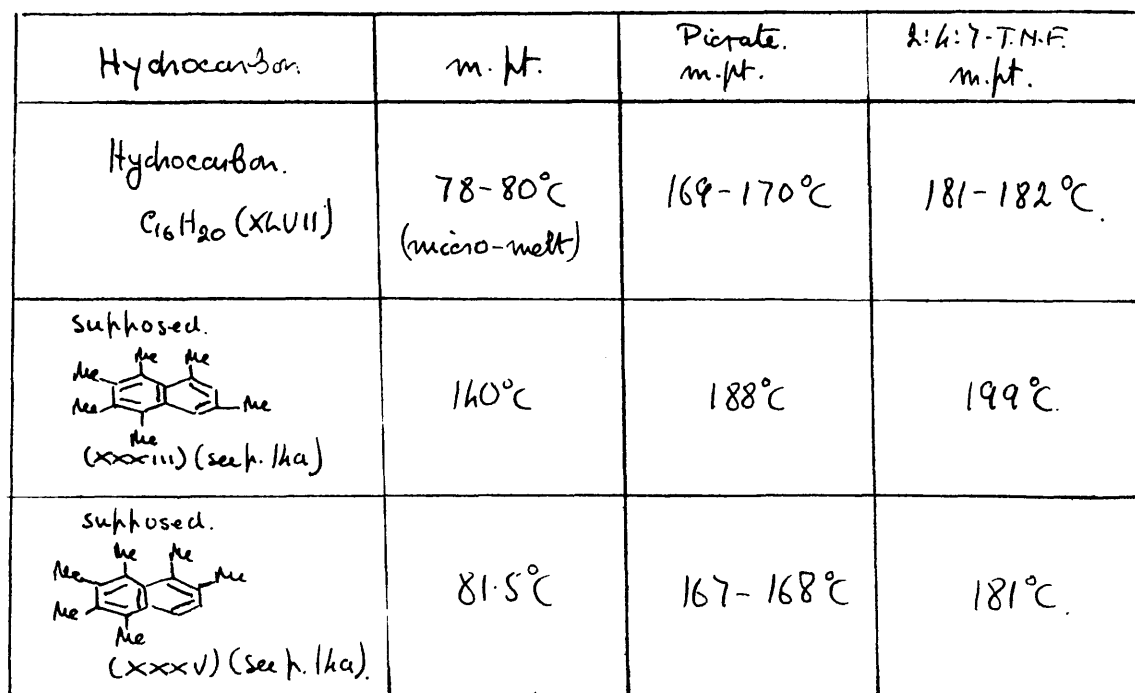 Hydrocarbon.
m.pt.
Picrate.
m.pt.
2:4:7-T.N.F.
m.pt.
Hydrocarbon.
C16H20 (XLVII)
78-80°C
(micro-melt)
169-170°C
181-182°C.
supposed.
Me Me
Me
Me Me
Me
(XXXIII) (see p. 14a)
140°C
188°C
199°C.
supposed.
Me Me
Me Me
Me
Me
(XXXV) (see p. 14a).
81.5°C
167-168°C
181°C.